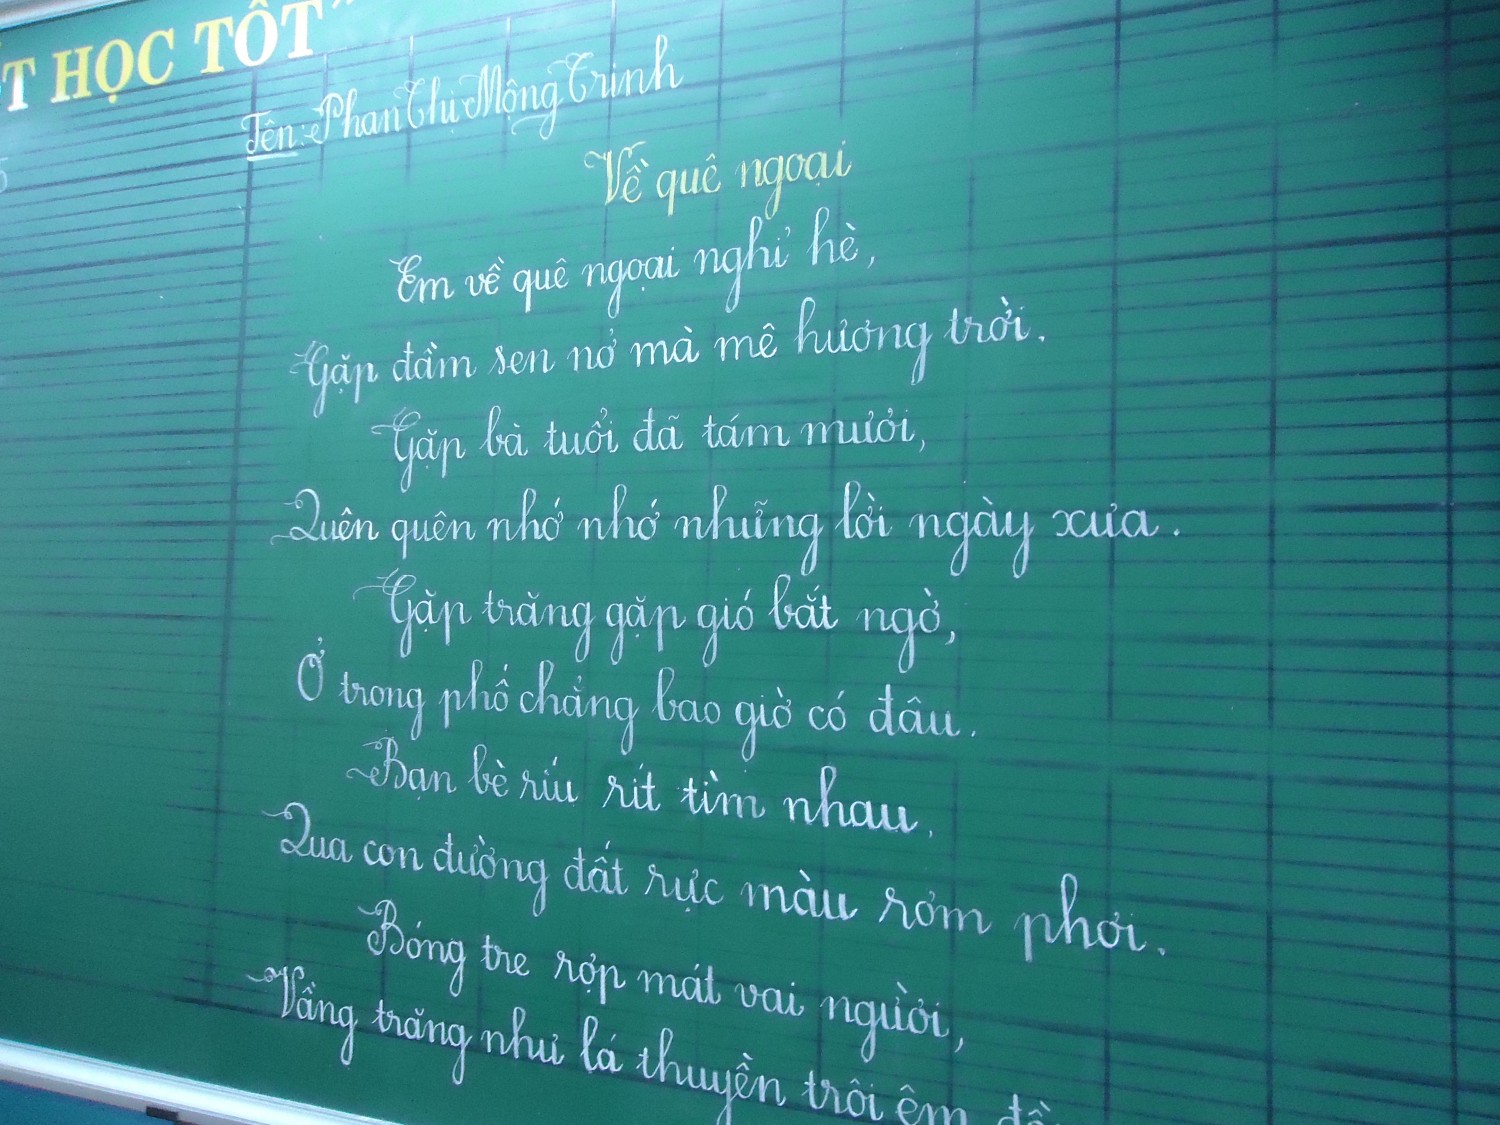 T HỌC TỐT"
Tên: Phan Thị Mộng Trinh
Về quê ngoại
Em về quê ngoại nghỉ hè,
Gặp đầm sen nở mà mê hương trời.
Gặp bà tuổi đã tám mươi,
Quên quên nhớ nhớ những lời ngày xưa.
Gặp trăng gặp gió bất ngờ,
Ở trong phố chẳng bao giờ có đâu.
Bạn bè ríu rít tìm nhau,
Qua con đường đất rực màu rơm phơi.
Bóng tre rợp mát vai người,
Vầng trăng như lá thuyền trôi êm đềm